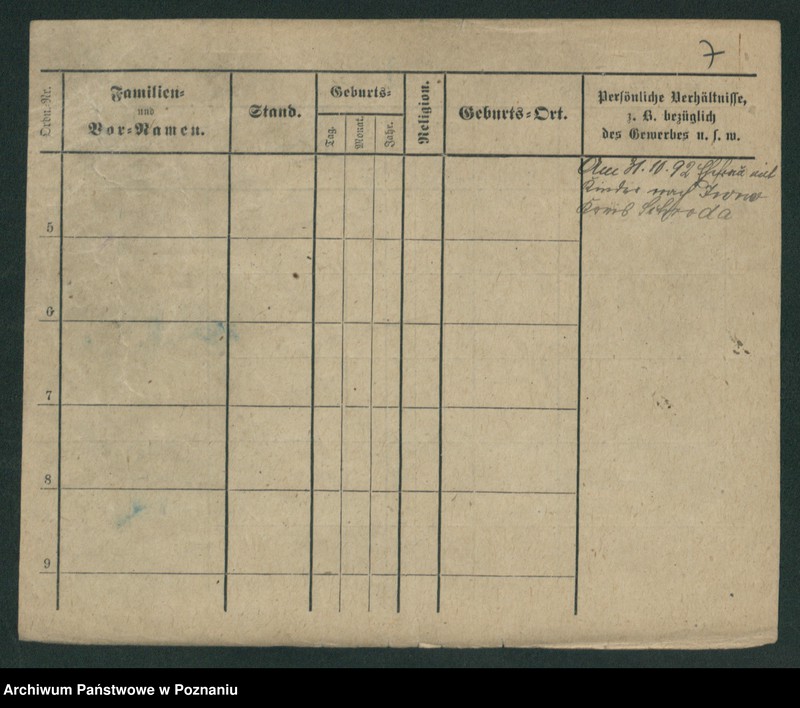 7
Ordn.-Nr.
Familien-
und
Vor-Namen.
Stand.
Geburts-
Tag.
Monat.
Jahr.
Religion.
Geburts-Ort.
Persönliche Verhältnisse,
z. B. bezüglich
des Gewerbes u. s. w.
Am 31.10.92 Ehefrau mit
Kinder nach
Kreis Schroda
5
6
7
8
9
Archiwum Państwowe w Poznaniu